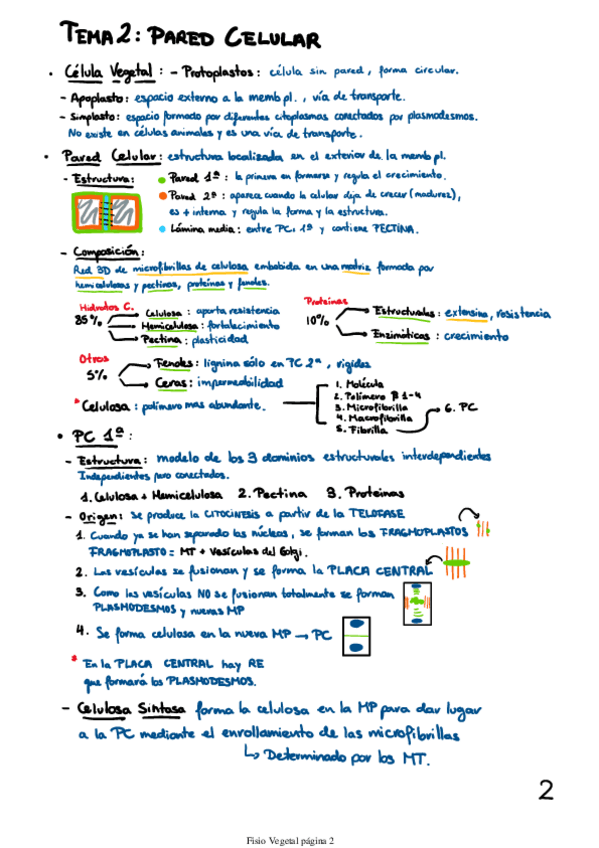 TEMA 2: PARED CELULAR
• Célula Vegetal: - Protoplastos: célula sin pared, forma circular.
- Apoplasto: espacio externo a la memb pl., vía de transporte.
- Simplasto: espacio formado por diferentes citoplasmas conectados por plasmodesmos.
No existe en células animales y es una vía de transporte.
• Pared Celular: estructura localizada en el exterior de la memb pl.
- Estructura:
Pared 1ª: la primera en formarse y regula el crecimiento.
Pared 2ª: aparece cuando la celular deja de crecer (madurez),
es + interna y regula la forma y la estructura.
Lámina media: entre PC 1ª y contiene PECTINA.
- Composición:
Red 3D de microfibrillas de celulosa embebida en una matriz formada por
hemicelulosas y pectinas, proteínas y fenoles.
Hidratos C.
85%
Celulosa: aporta resistencia
Hemicelulosa: fortalecimiento
Pectina: plasticidad
Proteínas
10%
Estructurales: extensina, resistencia
Enzimáticas: crecimiento
Otros
5%
Fenoles: lignina sólo en PC 2ª, rigidez
Ceras: impermeabilidad
* Celulosa: polímero mas abundante.
1. Molécula
2. Polímero β 1-4
3. Microfibrilla
4. Macrofibrilla
5. Fibrilla
6. PC
• PC 1ª:
- Estructura: modelo de los 3 dominios estructurales interdependientes
Independientes pero conectados.
1. Celulosa + Hemicelulosa 2. Pectina 3. Proteínas
- Origen: se produce la CITOCINESIS a partir de la TELOFASE
1. Cuando ya se han separado los núcleos, se forman los FRAGMOPLASTOS
FRAGMOPLASTO = MT + Vesículas del Golgi.
2. Las vesículas se fusionan y se forma la PLACA CENTRAL
3. Como las vesículas NO se fusionan totalmente se forman
PLASMODESMOS y nuevas MP
4. Se forma celulosa en la nueva MP → PC
* En la PLACA CENTRAL hay RE
que formará los PLASMODESMOS.
- Celulosa Sintasa forma la celulosa en la MP para dar lugar
a la PC mediante el enrollamiento de las microfibrillas
↳ Determinado por los MT.
2
Fisio Vegetal página 2